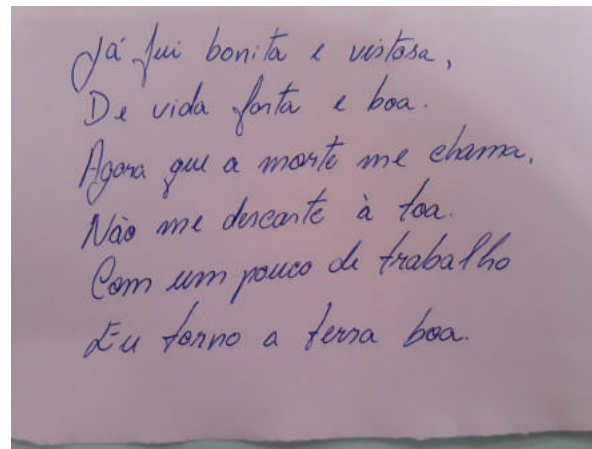 Já fui bonita e vistosa,
De vida farta e boa.
Agora que a morte me chama,
Não me descarte à toa.
Com um pouco de trabalho
Eu torno a terra boa.